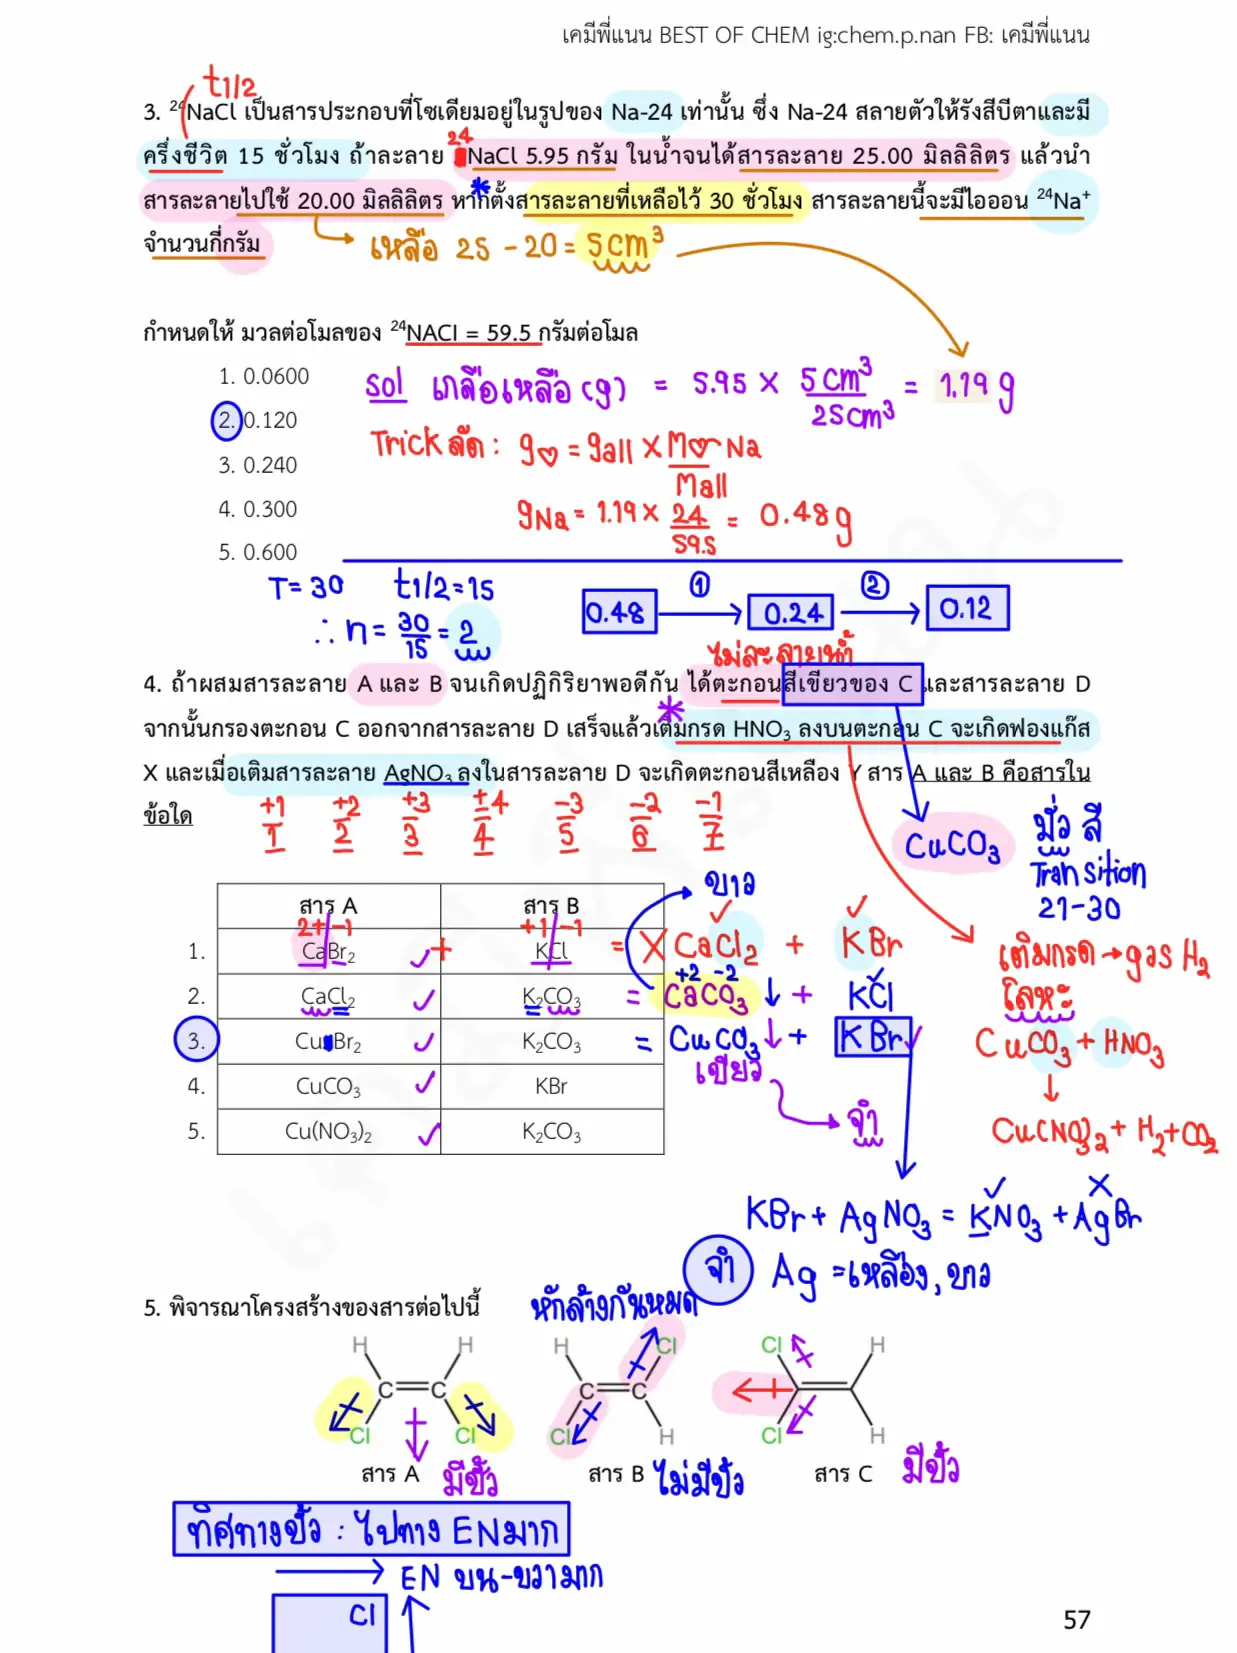 เคมีพี่แนน BEST OF CHEM ig:chem.p.nan FB: เคมีพี่แนน
t1/2
3. ²⁴NaCl เป็นสารประกอบที่โซเดียมอยู่ในรูปของ Na-24 เท่านั้น ซึ่ง Na-24 สลายตัวให้รังสีบีตาและมี
24
ครึ่งชีวิต 15 ชั่วโมง ถ้าละลาย NaCl 5.95 กรัม ในน้ำจนได้สารละลาย 25.00 มิลลิลิตร แล้วนำ
สารละลายไปใช้ 20.00 มิลลิลิตร หากตั้งสารละลายที่เหลือไว้ 30 ชั่วโมง สารละลายนี้จะมีไอออน ²⁴Na⁺
จำนวนกี่กรัม
เหลือ 25 - 20 = 5cm³
กำหนดให้ มวลต่อโมลของ ²⁴NACl = 59.5 กรัมต่อโมล
1. 0.0600
2. 0.120
3. 0.240
4. 0.300
5. 0.600
Sol เกลือเหลือ (g) = 5.95 × 5cm³/25cm³ = 1.19 g
Trick ลัด : g♡ = gall × M♡ Na/Mall
gNa = 1.19 × 24/59.5 = 0.48 g
T = 30 t1/2 = 15
∴ n = 30/15 = 2
0.48 ① → 0.24 ② → 0.12
ไม่ละลายน้ำ
4. ถ้าผสมสารละลาย A และ B จนเกิดปฏิกิริยาพอดีกัน ได้ตะกอนสีเขียวของ C และสารละลาย D
จากนั้นกรองตะกอน C ออกจากสารละลาย D เสร็จแล้วเติมกรด HNO₃ ลงบนตะกอน C จะเกิดฟองแก๊ส
X และเมื่อเติมสารละลาย AgNO₃ ลงในสารละลาย D จะเกิดตะกอนสีเหลือง Y สาร A และ B คือสารใน
ข้อใด
+1 +2 +3 ±4 -3 -2 -1
1 2 3 4 5 6 7
CuCO₃ มั่ว สี
Transition
21-30
ขาว
สาร A สาร B
2+ -1 +1 -1
1. CaBr₂ + KCl = X CaCl₂ + KBr
+2 -2
2. CaCl₂ K₂CO₃ = CaCO₃ ↓ + KCl
3. CuBr₂ K₂CO₃ = CuCO₃ ↓ + KBr
เขียว
จำ
4. CuCO₃ KBr
5. Cu(NO₃)₂ K₂CO₃
เติมกรด → gas H₂
โลหะ
CuCO₃ + HNO₃
↓
Cu(NO₃)₂ + H₂ + CO₂
KBr + AgNO₃ = KNO₃ + AgBr
จำ Ag = เหลือง, ขาว
5. พิจารณาโครงสร้างของสารต่อไปนี้
หักล้างกันหมด
H H H Cl Cl H
C C C C
Cl Cl Cl H Cl H
สาร A มีขั้ว สาร B ไม่มีขั้ว สาร C มีขั้ว
ทิศทางขั้ว : ไปทาง EN มาก
→ EN บน-ขวามาก
Cl
57